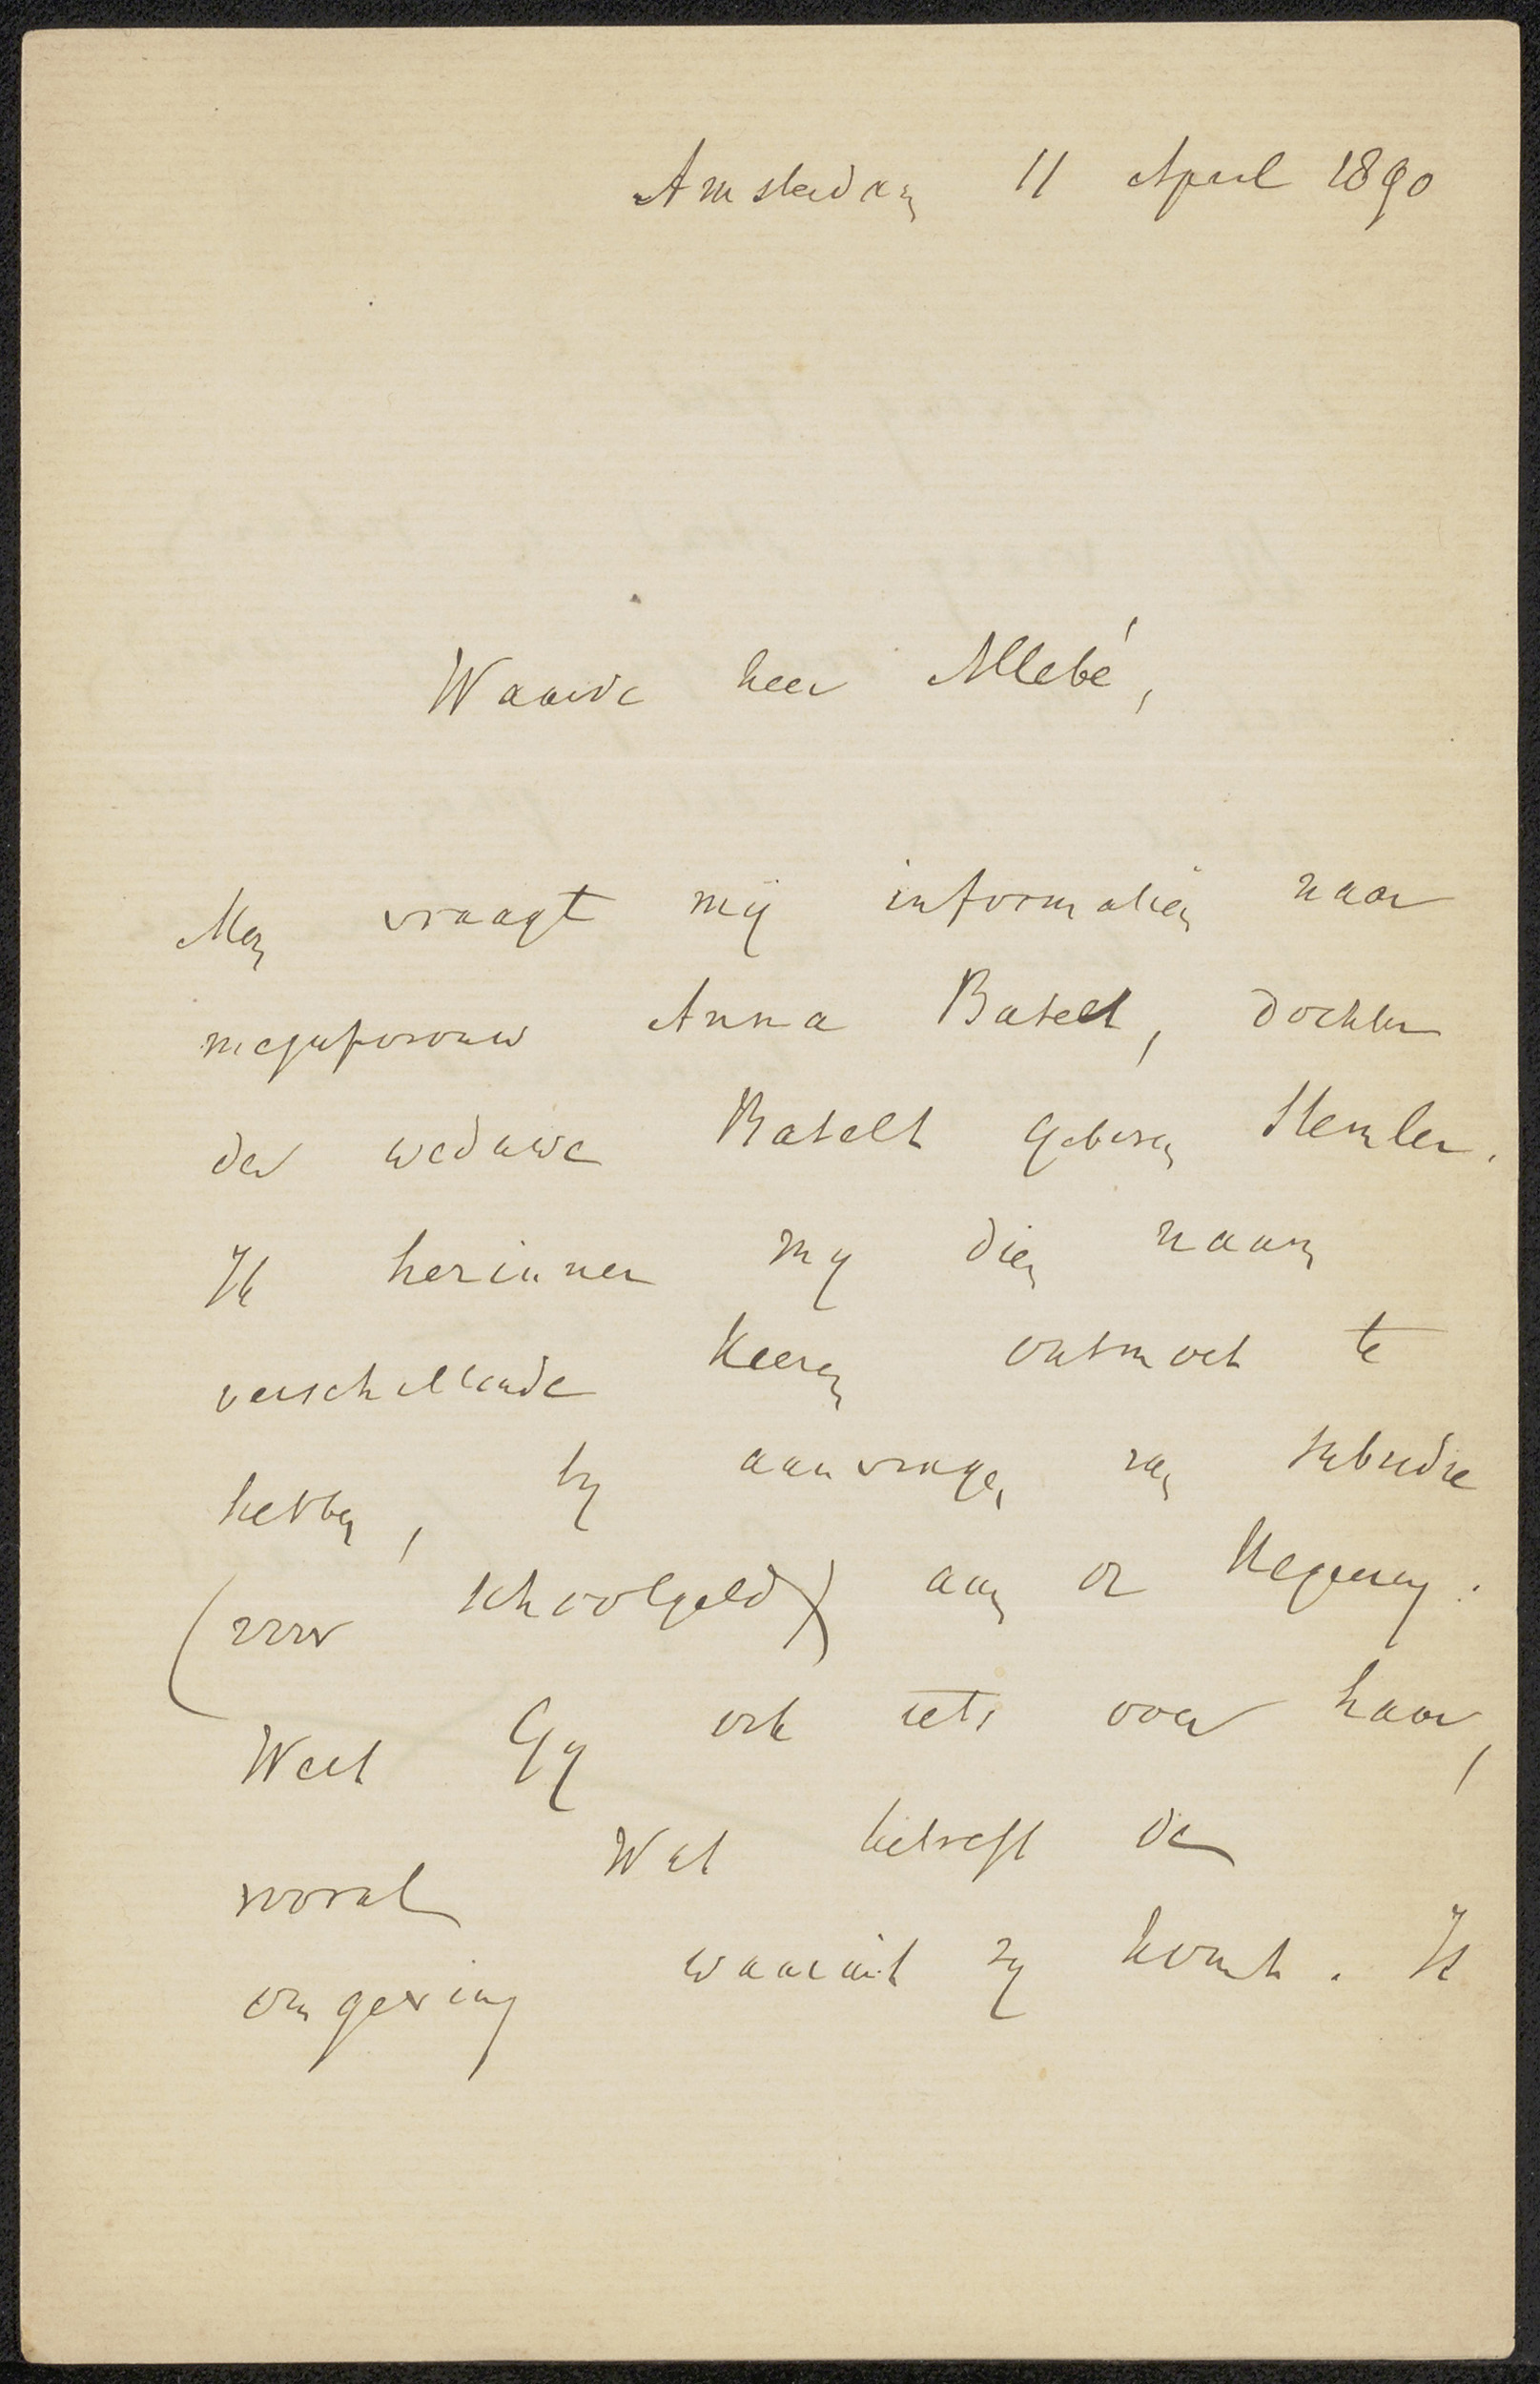 Amsterdam 11 April 1890
Waarde heer Allebé,
Men vraagt mij informatien naar
mejufvrouw Anna Batelt, dochter
der weduwe Batelt geboren Stemler.
Ik herinner my dien naam
verschillende keeren ontmoet te
hebben, by aanvragen van subsidie
(voor schoolgeld) aan de Regering.
Weet Gy ook iets over haar,
vooral wat betreft de
omgeving waaruit zy komt. Is